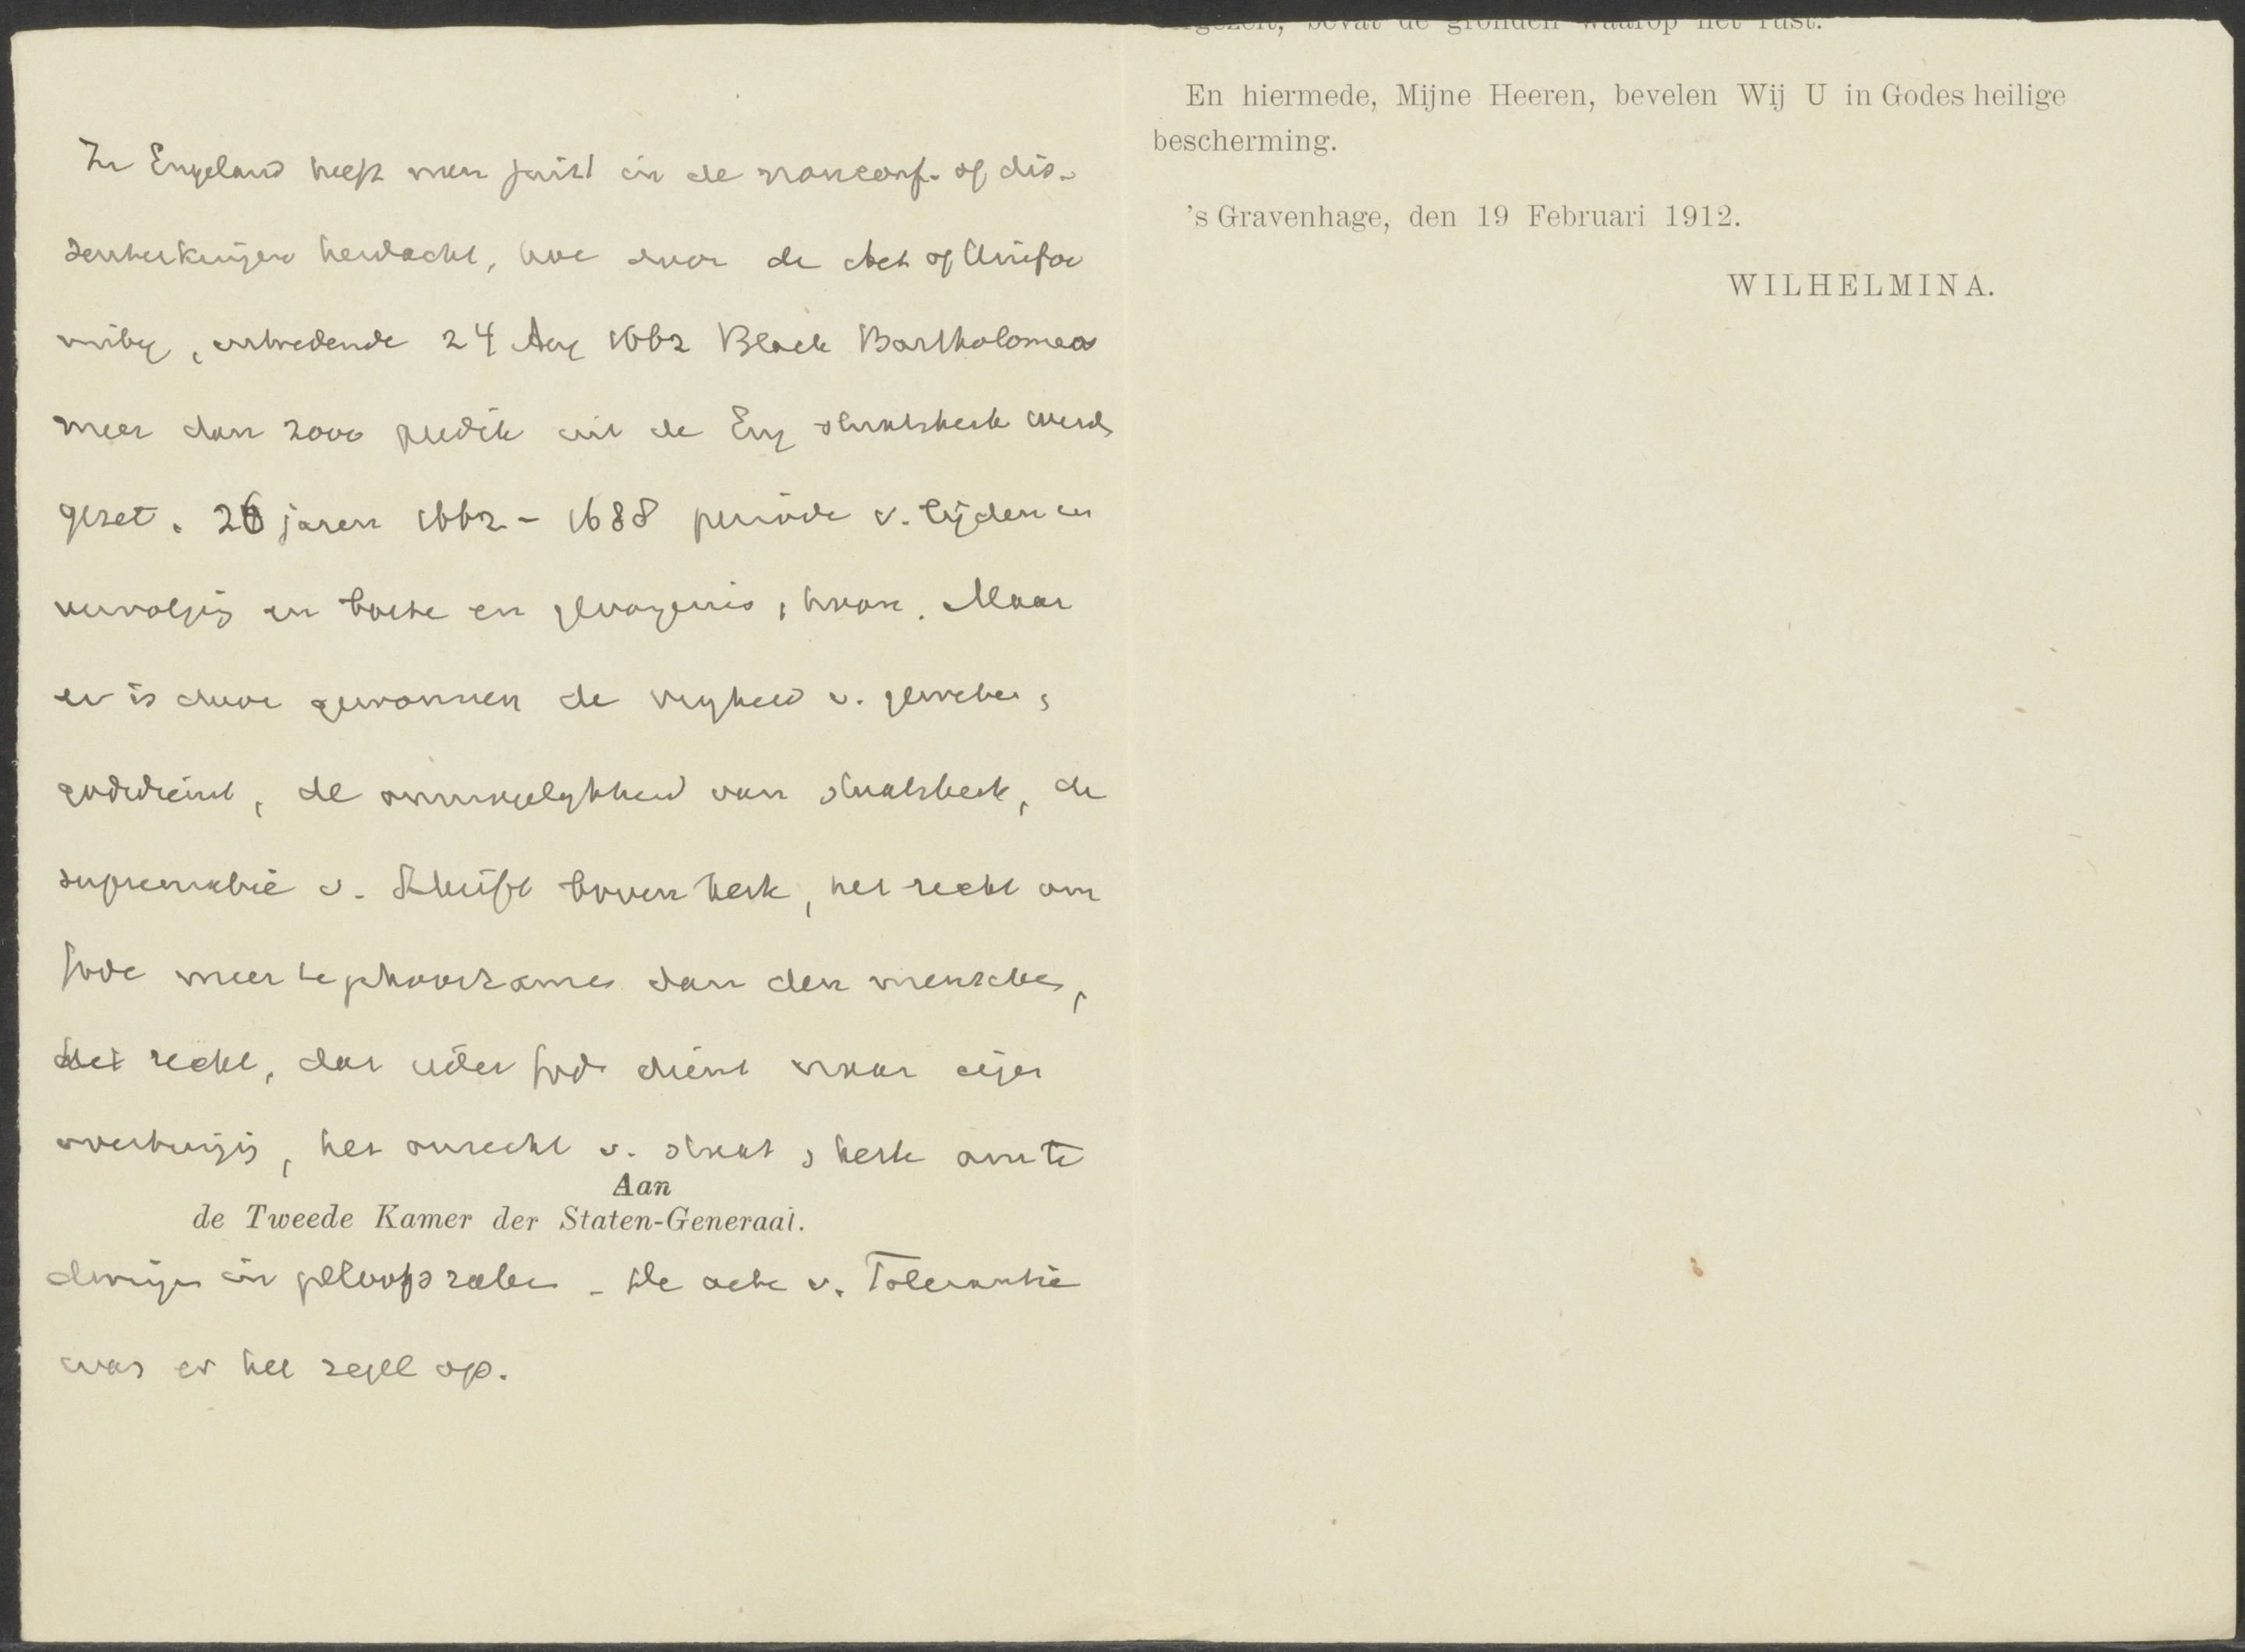 In Engeland heeft men juist in de nonconf. of dis-
senterkringen herdacht, hoe door de Act of Unifor
mity, intredende 24 Aug 1662 Black Bartholomew
meer dan 2000 predik uit de Eng staatskerk werd
gezet. 26 jaren 1662 - 1688 periode v. lijden en
vervolging en boete en gevangenis, hoon. Maar
er is door gewonnen de vryheid v. geweten,
godsdienst, de onmogelykheid van staatskerk, de
suprematie v. Schrift boven kerk, het recht om
Gode meer te gehoorzamen dan den menschen,
het recht, dat ieder God dient naar eigen
overtuiging, het onrecht v. staat, kerk om te
Aan
de Tweede Kamer der Staten-Generaal.
dwingen in geloofszaken - De acte v. Tolerantie
was er het zegel op.
bevat de gronden waarop het rust.
En hiermede, Mijne Heeren, bevelen Wij U in Godes heilige
bescherming.
's Gravenhage, den 19 Februari 1912.
WILHELMINA.